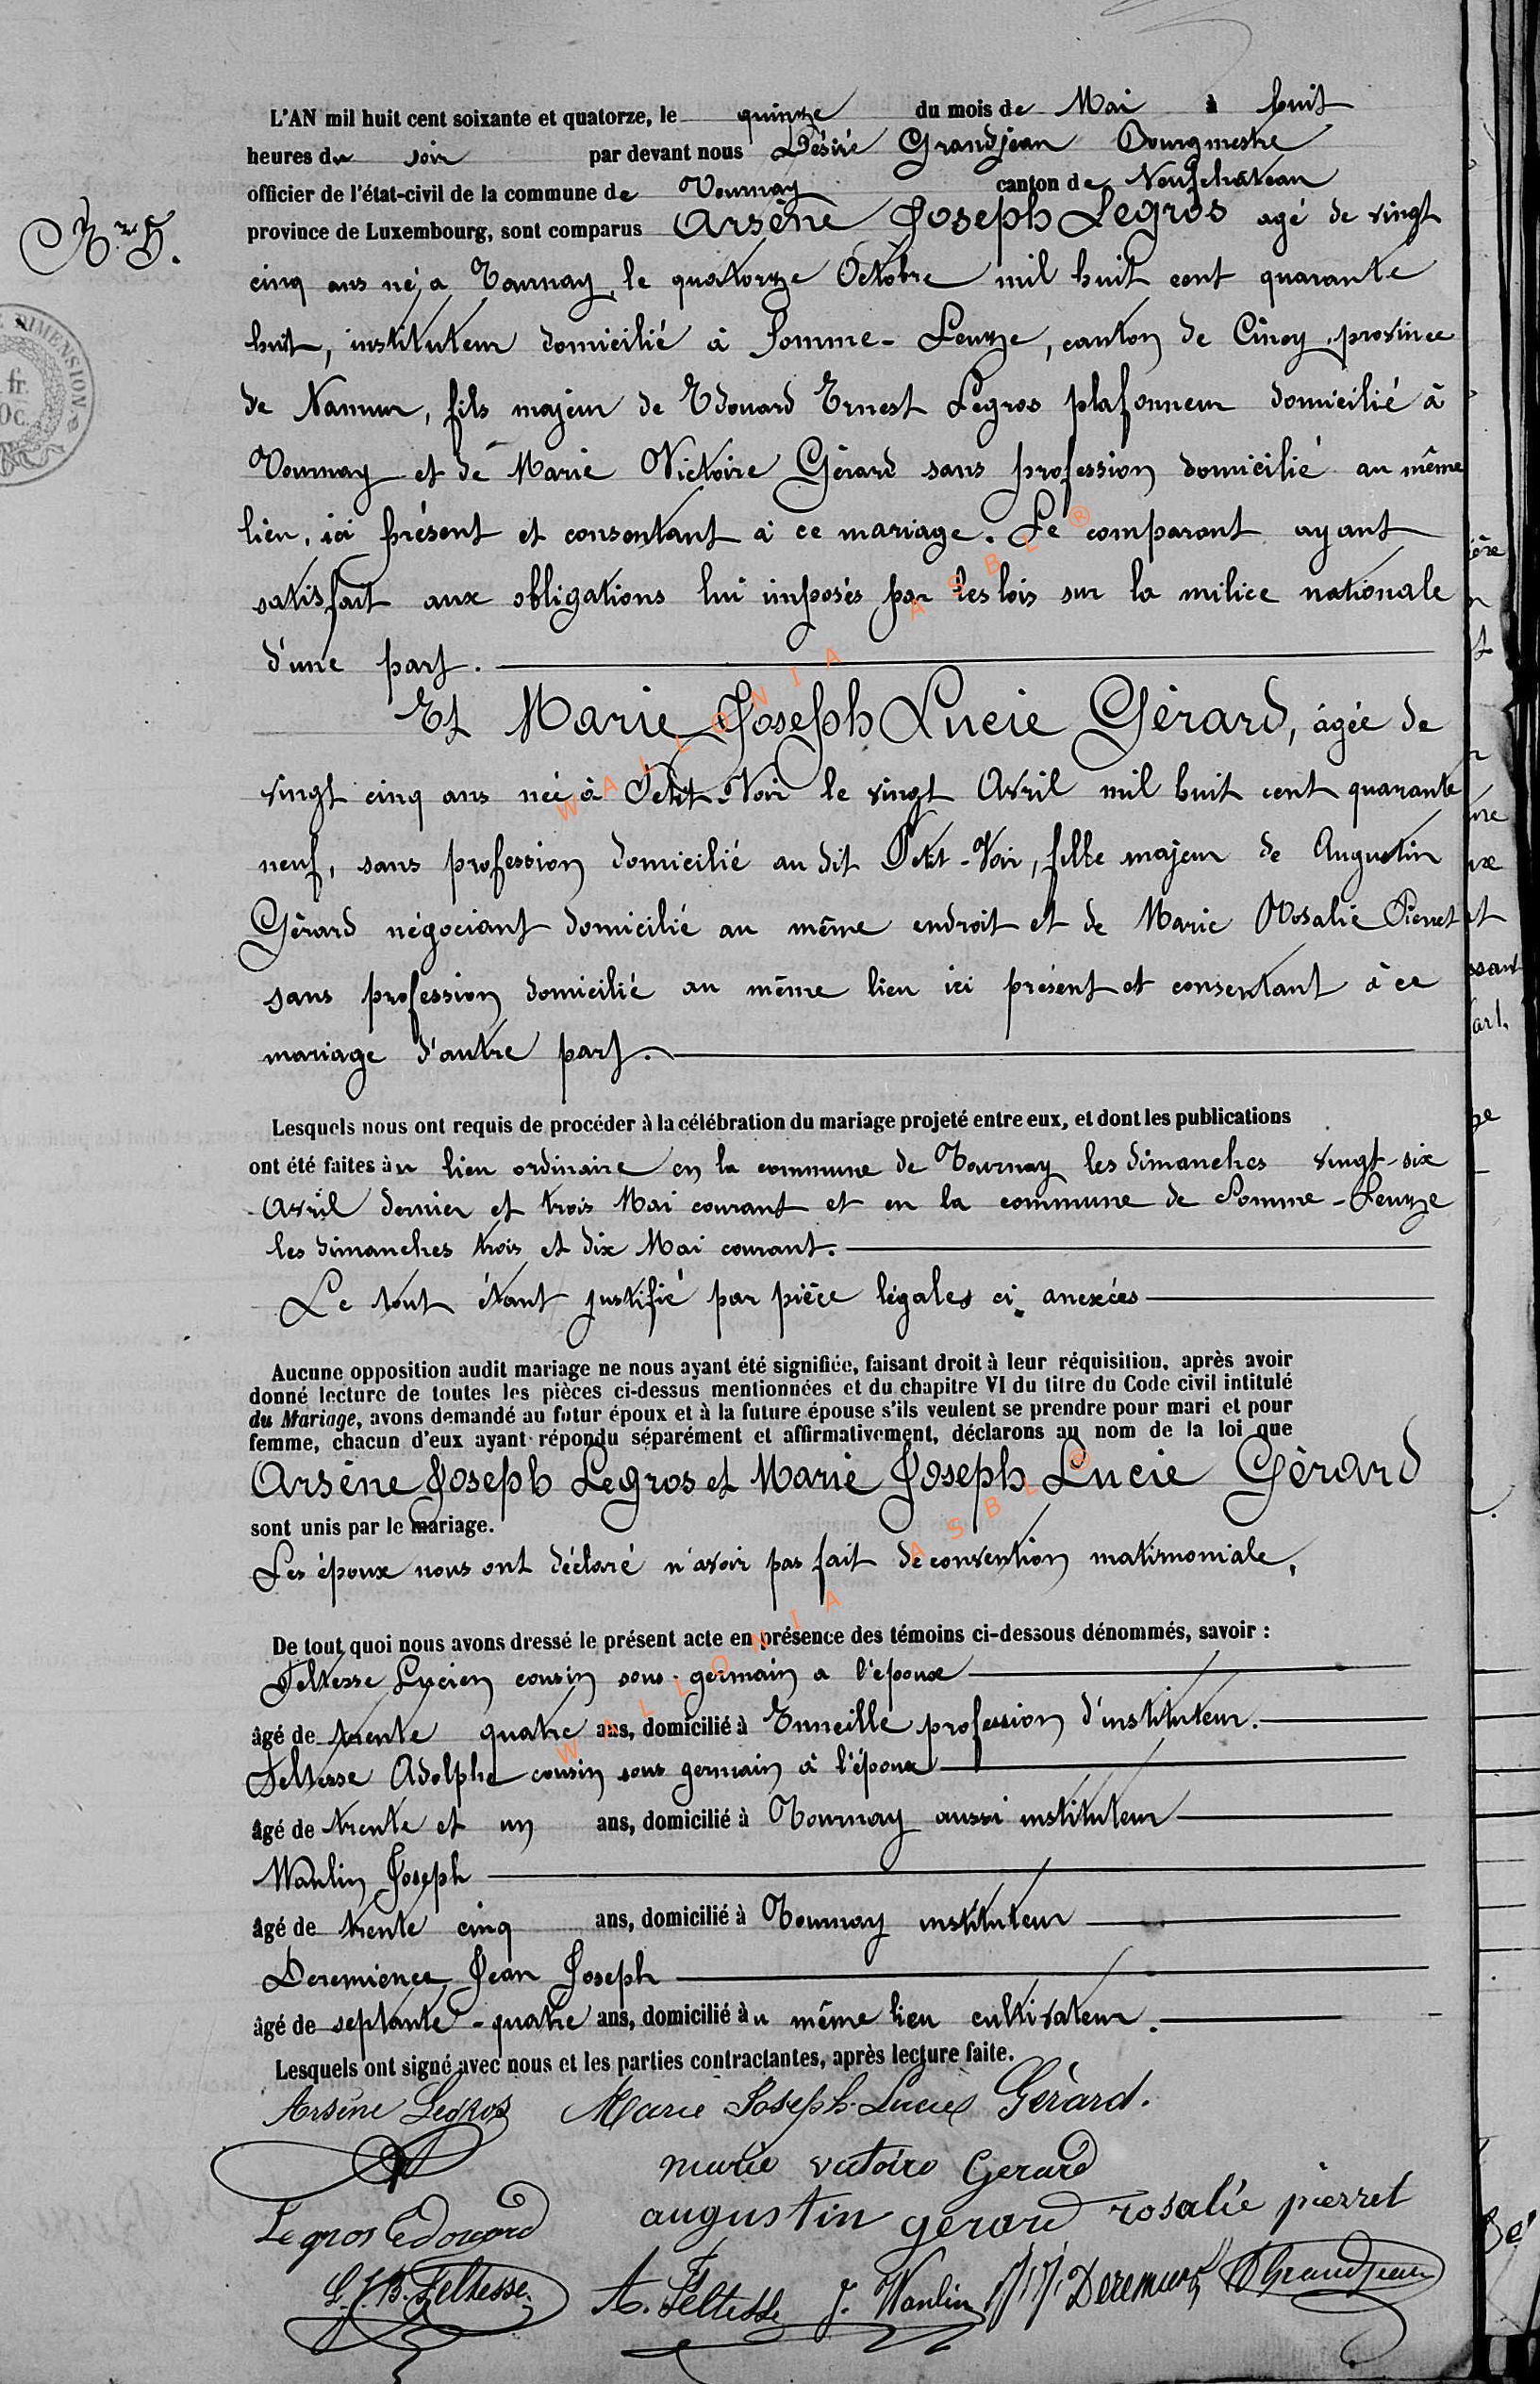 L'AN mil huit cent soixante et quatorze, le quinze du mois de Mai à huit
heures du soir par devant nous Désiré Grandjean Bourgmestre
officier de l'état-civil de la commune de Tournay canton de Neufchâteau
province de Luxembourg, sont comparus Arsène Joseph Legros agé de vingt
N.° 5.
cinq ans né à Tournay, le quatorze Octobre mil huit cent quarante
huit, instituteur domicilié à Somme-Leuze, canton de Ciney province
de Namur, fils majeur de Edouard Ernest Legros plafonneur domicilié à
Tournay et de Marie Victoire Gérard sans profession domicilié au même
lieu, ici présent et consentant à ce mariage. Le comparant ayant
satisfait aux obligations lui imposés par les lois sur la milice nationale
d'une part.
Et Marie Joseph Lucie Gérard, âgée de
vingt cinq ans née à Petit-Voir le vingt Avril mil huit cent quarante
neuf, sans profession domicilié au dit Petit-Voir, fille majeur de Augustin
Gérard négociant domicilié au même endroit et de Marie Rosalie Pierret
sans profession domicilié au même lieu ici présent et consentant à ce
mariage d'autre part.
Lesquels nous ont requis de procéder à la célébration du mariage projeté entre eux, et dont les publications
ont été faites au lieu ordinaire en la commune de Tournay les dimanches vingt-six
Avril dernier et trois Mai courant et en la commune de Somme-Leuze
les dimanches trois et dix Mai courant.
Le tout étant justifié par pièce légales ci anexées
Aucune opposition audit mariage ne nous ayant été signifiée, faisant droit à leur réquisition, après avoir
donné lecture de toutes les pièces ci-dessus mentionnées et du chapitre VI du titre du Code civil intitulé
du Mariage, avons demandé au futur époux et à la future épouse s'ils veulent se prendre pour mari et pour
femme, chacun d'eux ayant répondu séparément et affirmativement, déclarons au nom de la loi que
Arsène Joseph Legros et Marie Joseph Lucie Gérard
sont unis par le mariage.
Les époux nous ont déclaré n'avoir pas fait de convention matimoniale.
De tout quoi nous avons dressé le présent acte en présence des témoins ci-dessous dénommés, savoir :
Feltesse Lucien cousin sous germain a l'époux
âgé de trente quatre ans, domicilié à Enneille profession d'instituteur.
Feltesse Adolphe cousin sous germain à l'époux
âgé de trente et un ans, domicilié à Tournay aussi instituteur
Wanlin Joseph
âgé de trente cinq ans, domicilié à Tournay instituteur
Deremience Jean Joseph
âgé de septante-quatre ans, domicilié au même lieu cultivateur.
Lesquels ont signé avec nous et les parties contractantes, après lecture faite.
Arsène Legros Marie Joseph Lucie Gérard.
marie victoire Gerard
Legros Edouard augustin gerard rosalie pierret
L.J.B. Feltesse A. Feltesse J. Wanlin J.J. Deremience D Grandjean
WALLONIA ASBL ®
WALLONIA ASBL ®